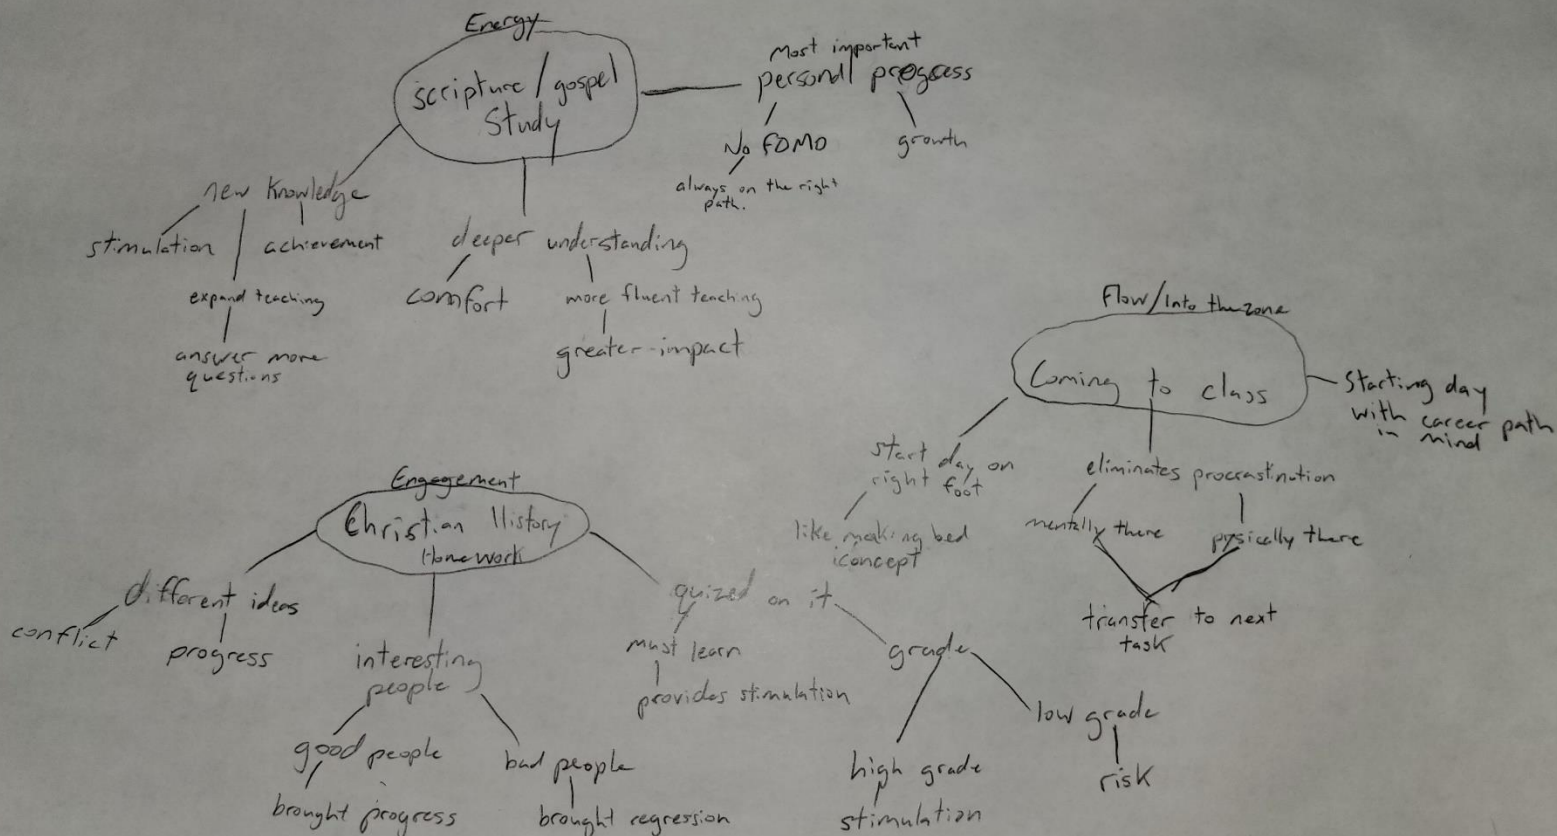 Energy
scripture/gospel
Study
Most important
personal progress
No FOMO
growth
always on the right
path.
new knowledge
stimulation
achievement
expand teaching
answer more
questions
deeper understanding
comfort
more fluent teaching
greater impact
Flow/Into the zone
Coming to class
Starting day
with career path
in mind
start day on
right foot
like making bed
concept
eliminates procrastination
mentally there
pysically there
transfer to next
task
Engagement
Christian History
Homework
different ideas
conflict
progress
interesting
people
good people
brought progress
bad people
brought regression
quized on it
must learn
provides stimulation
grade
high grade
stimulation
low grade
risk